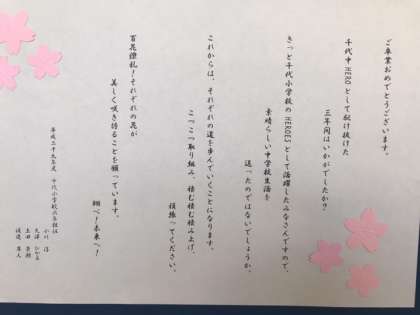 ご卒業おめでとうございます。
千代中HEROとして駆け抜けた
三年間はいかがでしたか?
きっと千代小学校のHEROESとして活躍したみなさんですので、
素晴らしい中学校生活を
送ったのではないでしょうか。
これからは、それぞれの道を歩んでいくことになります。
こつこつ取り組み、積む積む積み上げ、
頑張ってください。
百花繚乱!それぞれの花が
美しく咲き誇ることを願っています。
翔べ!未来へ!
平成二十九年度 千代小学校六年担任
小川 淳
大澤 ひかる
渡邉 隼人